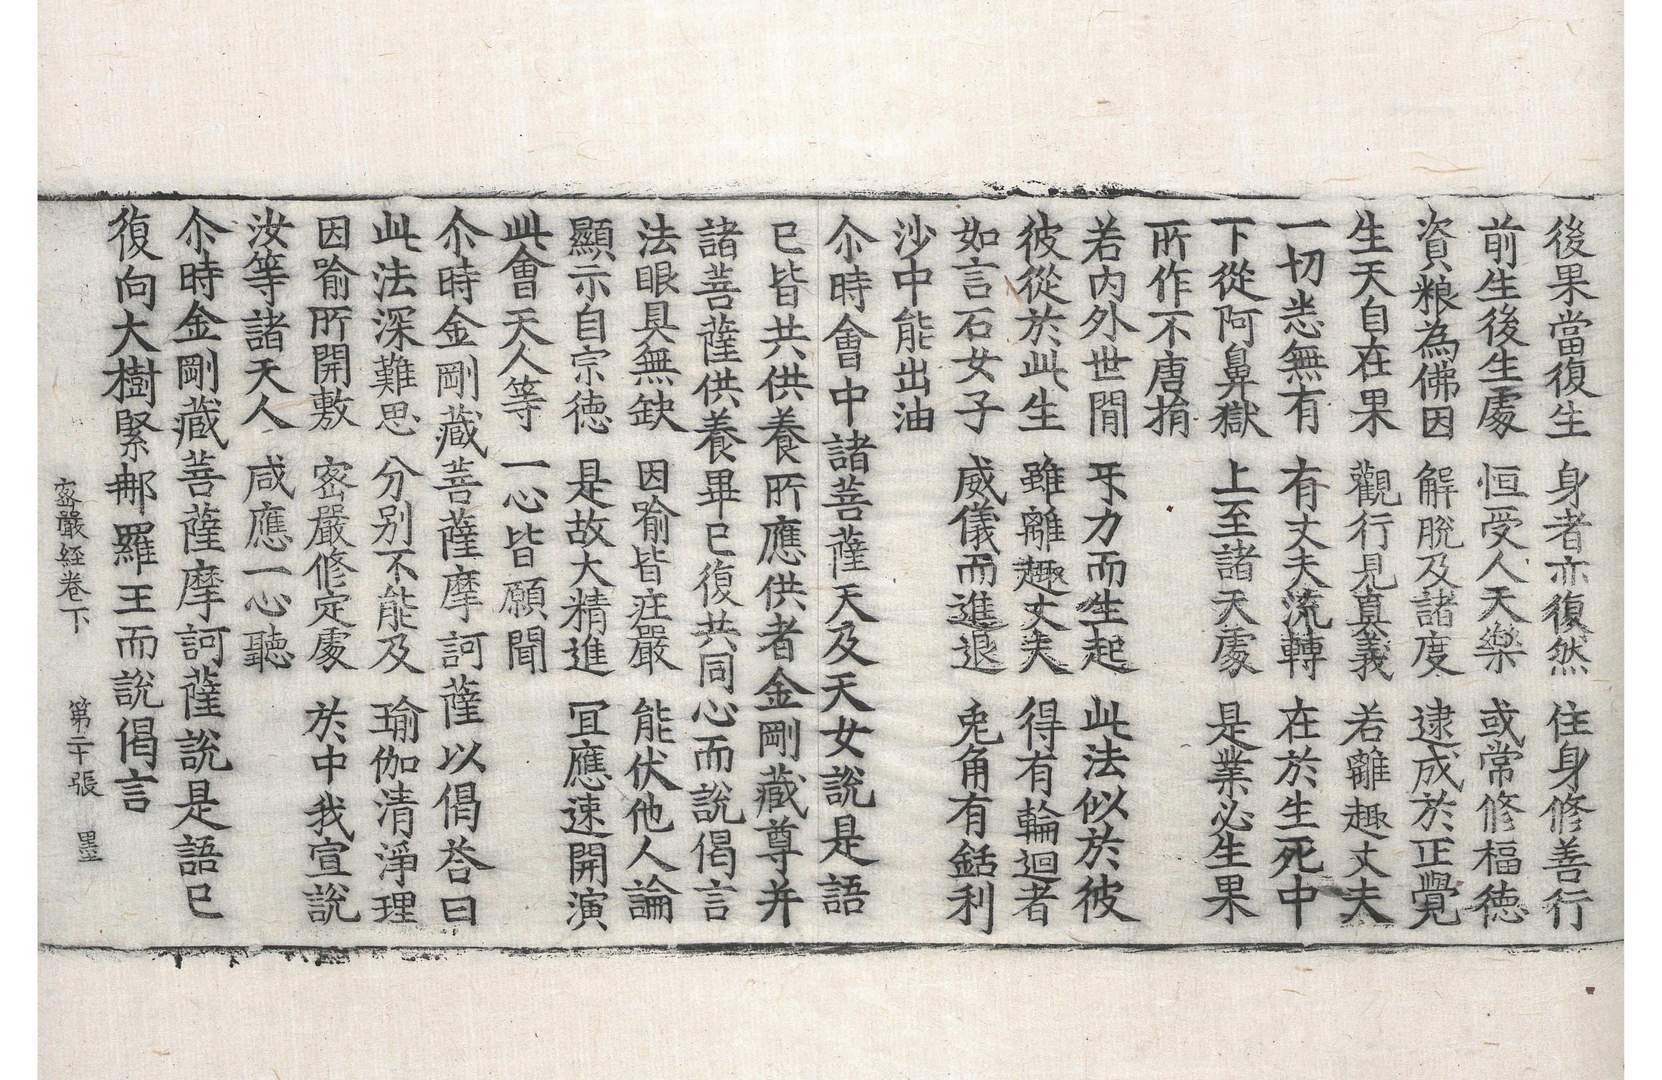 後果當復生 身者亦復然 住身修善行
前生後生處 恒受人天樂 或常修福德
資粮為佛因 解脫及諸度 逮成於正覺
生天自在果 觀行見真義 若離趣丈夫
一切悉無有 有丈夫流轉 在於生死中
下從阿鼻獄 上至諸天處 是業必生果
所作不唐捐
若內外世間 㸦力而生起 此法似於彼
彼從於此生 雖離趣丈夫 得有輪迴者
如言石女子 威儀而進退 兎角有銛利
沙中能出油
尒時會中諸菩薩天及天女說是語
已皆共供養所應供者金剛藏尊并
諸菩薩供養畢已復共同心而說偈言
法眼具無缺 因喻皆莊嚴 能伏他人論
顯示自宗德 是故大精進 冝應速開演
此會天人等 一心皆願聞
尒時金剛藏菩薩摩訶薩以偈荅曰
此法深難思 分别不能及 瑜伽清淨理
因喻所開敷 密嚴修定處 於中我宣說
汝等諸天人 咸應一心聽
尒時金剛藏菩薩摩訶薩說是語已
復向大樹緊那羅王而說偈言
密嚴経卷下 第二十張 墨